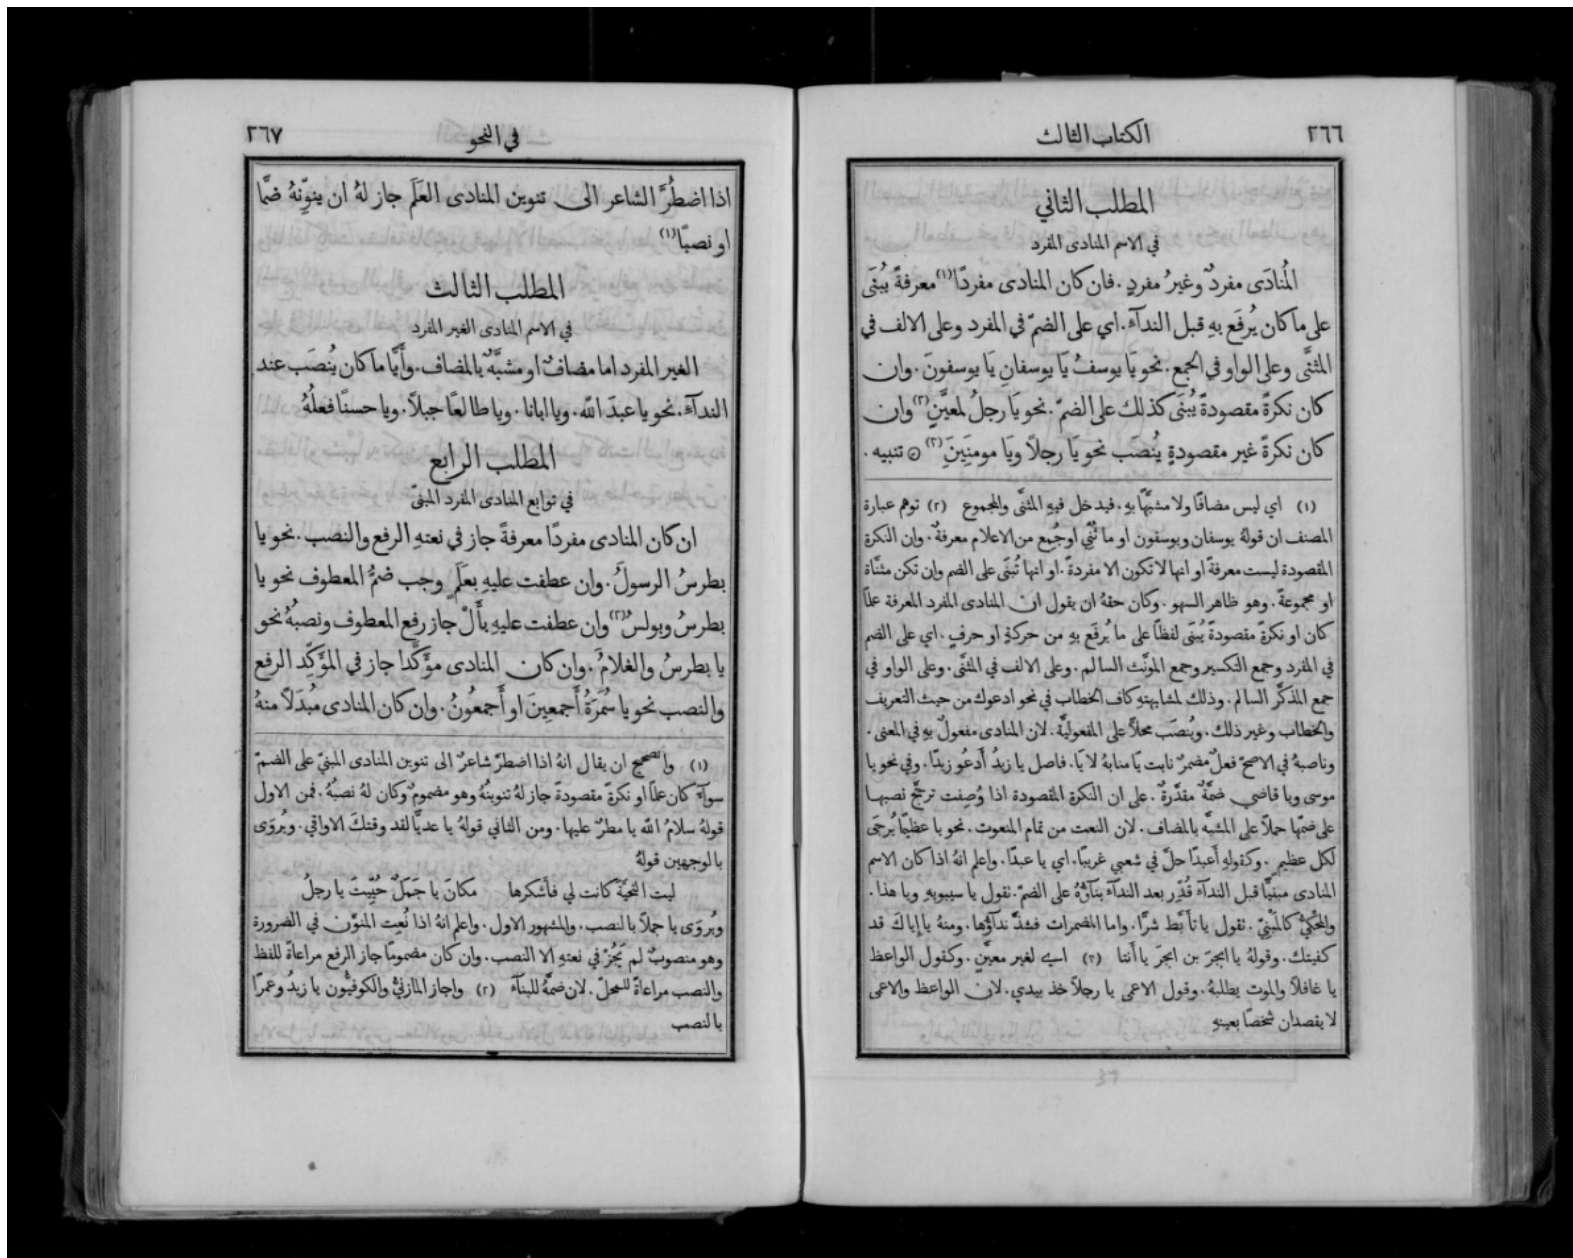 ٢٦٦
الكتاب الثالث
المطلب الثاني
في الاسم المنادى المفرد
المُنادَى مفردٌ وغيرُ مفردٍ. فان كان المنادى مفردًا(١) معرفةً يُبنَى
على ما كان يُرفَع بهِ قبل الندآءِ. اي على الضمّ في المفرد وعلى الالف في
المثنَّى وعلى الواو في الجمع. نحو يَا يوسفُ يَا يوسفانِ يَا يوسفونَ. وان
كان نكرةً مقصودةً يُبنَى كذلك على الضمّ. نحو يَا رجلُ لمعيَّنٍ(٢) وان
كان نكرةً غير مقصودةٍ يُنصَب نحو يَا رجلًا ويَا مومنِينَ(٣) ۞ تنبيه.
(١) اي ليس مضافًا ولا مشبَّهًا بهِ. فيدخل فيهِ المثنَّى والمجموع (٢) توهم عبارة
المصنف ان قولهُ يوسفان ويوسفون او ما ثُنِّي او جُمِع من الاعلام معرفةٌ. وان النكرة
المقصودة ليست معرفةً او انها لا تكون الا مفردةً. او انها تُبنَى على الضم وان تكن مثنَّاة
او مجموعةً. وهو ظاهر السهو. وكان حقهُ ان يقول ان المنادى المفرد المعرفة علمًا
كان او نكرةً مقصودةً يُبنَى لفظًا على ما يُرفَع بهِ من حركةٍ او حرفٍ. اي على الضم
في المفرد وجمع التكسير وجمع المونَّث السالم. وعلى الالف في المثنَّى. وعلى الواو في
جمع المذكَّر السالم. وذلك لمشابهتهِ كاف الخطاب في نحو ادعوك من حيث التعريف
والخطاب وغير ذلك. ويُنصَب محلًّا على المفعوليَّة. لان المنادى مفعولٌ بهِ في المعنى.
وناصبهُ في الاصحّ فعلٌ مضمرٌ نابت يَا منابهُ لا يَا. فاصل يا زيدُ أَدعُو زيدًا. وفي نحو يا
موسى ويا قاضي ضمَّةٌ مقدَّرةٌ. على ان النكرة المقصودة اذا وُصِفت ترجَّح نصبها
على ضمّها حملًا على المشبَّه بالمضاف. لان النعت من تمام المنعوت. نحو يا عظيمًا يُرجَى
لكل عظيمٍ. وكقولهِ أَعبدًا حلَّ في شعبي غريبًا. اي يا عبدًا. واعلم انهُ اذا كان الاسم
المنادى مبنيًّا قبل الندآءِ قُدِّر بعد الندآءِ بنآؤُهُ على الضمّ. نقول يا سيبويهِ ويا هذا.
والمحكيُّ كالمَبْنِيّ. نقول يا تأَبَّط شرًّا. واما المضمرات فشذَّ ندآؤُها. ومنهُ يا إِياكَ قد
كفيتك. وقولهُ يا ابجرَ بن ابجرَ يا أَنتا (٣) اي لغير معيَّنٍ. وكقول الواعظ
يا غافلًا والموت يطلبهُ. وقول الاعمى يا رجلًا خذ بيدي. لان الواعظ والاعمى
لا يقصدان شخصًا بعينهِ
٢٦٧
في النحو
اذا اضطُرَّ الشاعر الى تنوين المنادى العَلَم جاز لهُ ان ينوِّنهُ ضمًّا
او نصبًا(١)
المطلب الثالث
في الاسم المنادى الغير المفرد
الغير المفرد اما مضافٌ او مشبَّهٌ بالمضاف. وأَيًّا ما كان يُنصَب عند
الندآءِ. نحو يا عبدَ الله. ويا ابانا. ويا طالعًا جبلًا. ويا حسنًا فعلُهُ
المطلب الرابع
في توابع المنادى المفرد المبنيّ
ان كان المنادى مفردًا معرفةً جاز في نعتهِ الرفع والنصب. نحو يا
بطرسُ الرسولُ. وان عطفت عليهِ بعَلَمٍ وجب ضمُّ المعطوف نحو يا
بطرسُ وبولسُ(٢) وان عطفت عليهِ بأَلْ جاز رفع المعطوف ونصبهُ نحو
يا بطرسُ والغلامُ. وان كان المنادى مؤَكَّدا جاز في المؤَكِّد الرفع
والنصب نحو يا سُمَرَةُ أَجمعِينَ او أَجمعُونُ. وان كان المنادى مُبدَلًا منهُ
(١) والصحيح ان يقال انهُ اذا اضطرّ شاعرٌ الى تنوين المنادى المبنيّ على الضمّ
سوآءٌ كان علمًا او نكرةً مقصودةً جاز لهُ تنوينُهُ وهو مضمومٌ وكان لهُ نصبُهُ. فمن الاول
قولهُ سلامُ الله يا مطرٌ عليها. ومن الثاني قولهُ يا عديًّا لقد وقتكَ الاواقي. ويُروَى
بالوجهين قولهُ
ليت التحيَّة كانت لي فأَشكرها مكانَ يا جَمَلٌ حُيِّيتَ يا رجلُ
ويُروَى يا جملًا بالنصب. والمشهور الاول. واعلم انهُ اذا نُعِت المنوَّن في الضرورة
وهو منصوبٌ لم يَجُزْ في نعتهِ الا النصب. وان كان مضمومًا جاز الرفع مراعاةً للفظ
والنصب مراعاةً للمحلّ. لان ضمَّهُ للبنآءِ (٢) واجاز المازنيُّ والكوفيُّون يا زيدُ وعمرًا
بالنصب